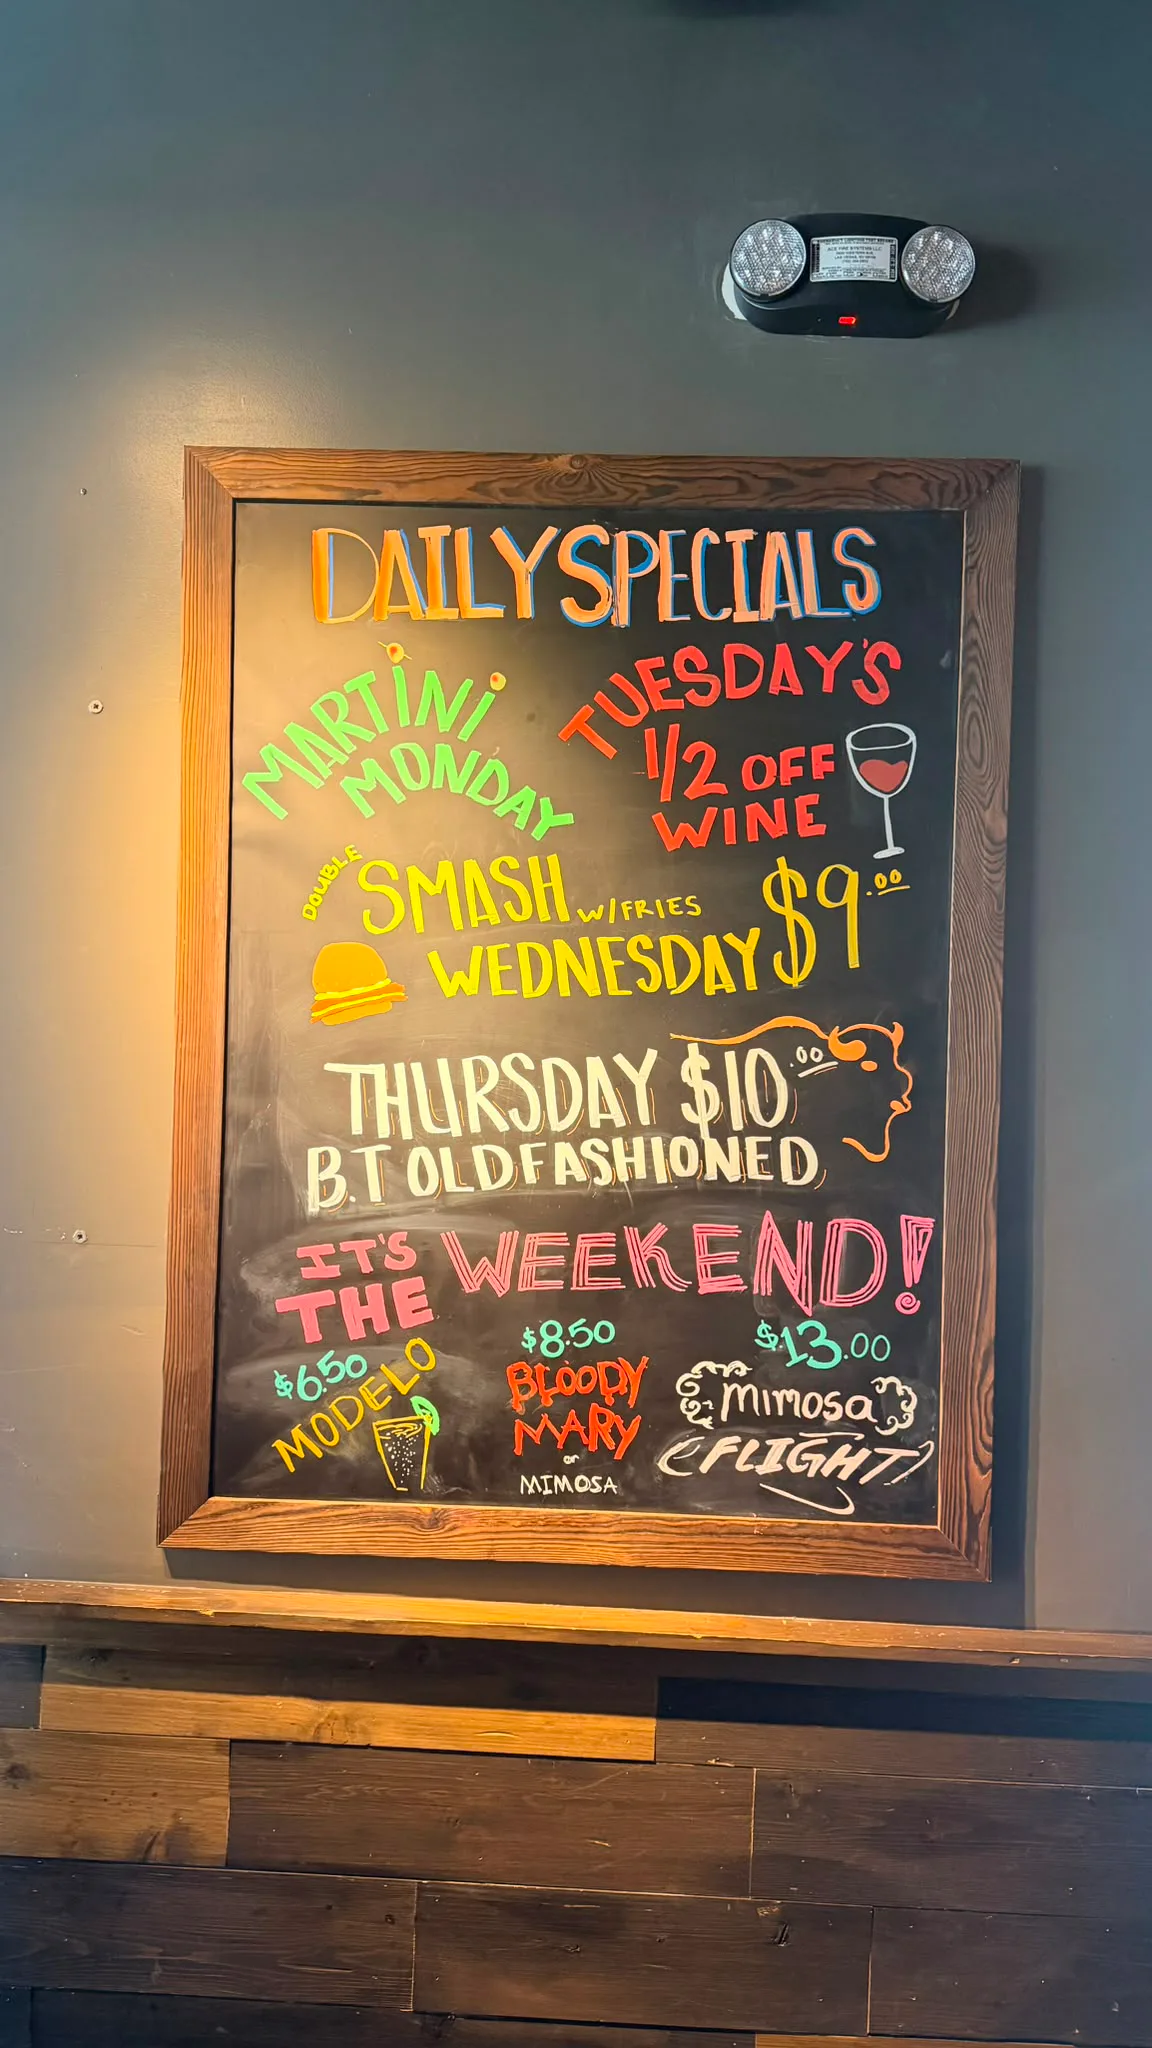 ACE FIRE SYSTEMS LLC
DAILY SPECIALS
MARTINI
MONDAY
TUESDAY'S
1/2 OFF
WINE
DOUBLE
SMASH W/FRIES
WEDNESDAY $9.00
THURSDAY $10.00
B.T OLD FASHIONED
IT'S
THE WEEKEND!
$6.50
MODELO
$8.50
BLOODY
MARY
or
MIMOSA
$13.00
MIMOSA
FLIGHT